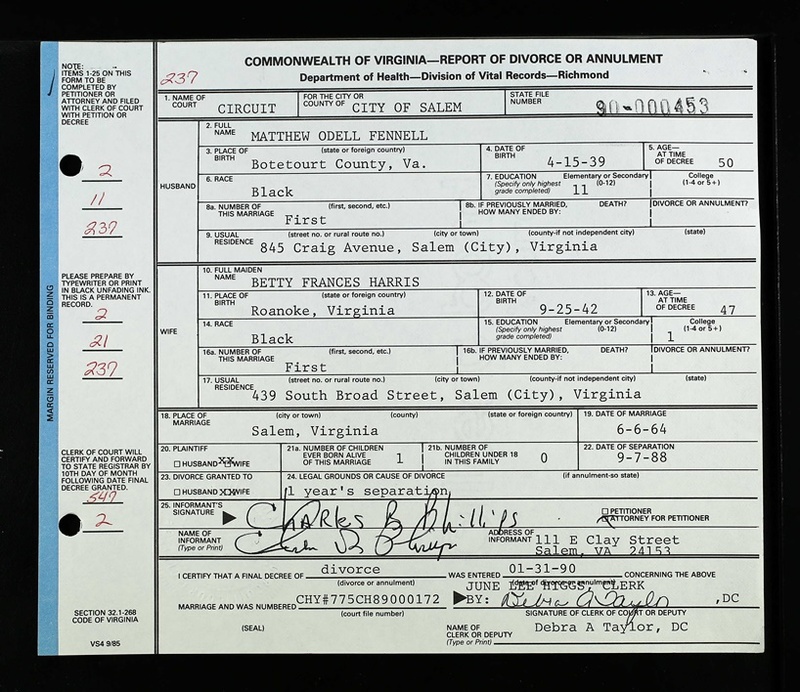 COMMONWEALTH OF VIRGINIA—REPORT OF DIVORCE OR ANNULMENT
Department of Health—Division of Vital Records—Richmond
237
NOTE:
ITEMS 1-25 ON THIS
FORM TO BE
COMPLETED BY
PETITIONER OR
ATTORNEY AND FILED
WITH CLERK OF COURT
WITH PETITION OR
DECREE
2
11
237
PLEASE PREPARE BY
TYPEWRITER OR PRINT
IN BLACK UNFADING INK.
THIS IS A PERMANENT
RECORD.
2
21
237
MARGIN RESERVED FOR BINDING
CLERK OF COURT WILL
CERTIFY AND FORWARD
TO STATE REGISTRAR BY
10TH DAY OF MONTH
FOLLOWING DATE FINAL
DECREE GRANTED.
547
2
SECTION 32.1-268
CODE OF VIRGINIA
VS4 9/85
1. NAME OF COURT CIRCUIT FOR THE CITY OR COUNTY OF CITY OF SALEM STATE FILE NUMBER 90-000453
HUSBAND
2. FULL NAME MATTHEW ODELL FENNELL
3. PLACE OF BIRTH (state or foreign country) Botetourt County, Va. 4. DATE OF BIRTH 4-15-39 5. AGE— AT TIME OF DECREE 50
6. RACE Black 7. EDUCATION (Specify only highest grade completed) Elementary or Secondary (0-12) 11 College (1-4 or 5+)
8a. NUMBER OF THIS MARRIAGE (first, second, etc.) First 8b. IF PREVIOUSLY MARRIED, HOW MANY ENDED BY: DEATH? DIVORCE OR ANNULMENT?
9. USUAL RESIDENCE (street no. or rural route no.) (city or town) (county-if not independent city) (state)
845 Craig Avenue, Salem (City), Virginia
WIFE
10. FULL MAIDEN NAME BETTY FRANCES HARRIS
11. PLACE OF BIRTH (state or foreign country) Roanoke, Virginia 12. DATE OF BIRTH 9-25-42 13. AGE— AT TIME OF DECREE 47
14. RACE Black 15. EDUCATION (Specify only highest grade completed) Elementary or Secondary (0-12) College (1-4 or 5+) 1
16a. NUMBER OF THIS MARRIAGE (first, second, etc.) First 16b. IF PREVIOUSLY MARRIED, HOW MANY ENDED BY: DEATH? DIVORCE OR ANNULMENT?
17. USUAL RESIDENCE (street no. or rural route no.) (city or town) (county-if not independent city) (state)
439 South Broad Street, Salem (City), Virginia
18. PLACE OF MARRIAGE (city or town) (county) (state or foreign country) Salem, Virginia 19. DATE OF MARRIAGE 6-6-64
20. PLAINTIFF ☐ HUSBAND XX WIFE 21a. NUMBER OF CHILDREN EVER BORN ALIVE OF THIS MARRIAGE 1 21b. NUMBER OF CHILDREN UNDER 18 IN THIS FAMILY 0 22. DATE OF SEPARATION 9-7-88
23. DIVORCE GRANTED TO ☐ HUSBAND XX WIFE 24. LEGAL GROUNDS OR CAUSE OF DIVORCE (if annulment-so state) 1 year's separation
25. INFORMANT'S SIGNATURE CHARLES B Phillips ☐ PETITIONER ATTORNEY FOR PETITIONER
NAME OF INFORMANT (Type or Print) ADDRESS OF INFORMANT 111 E Clay Street
Salem, VA 24153
I CERTIFY THAT A FINAL DECREE OF divorce (divorce or annulment) WAS ENTERED 01-31-90 (date of divorce or annulment) CONCERNING THE ABOVE
JUNE LEE HIGGS, CLERK
MARRIAGE AND WAS NUMBERED CHY#775CH89000172 (court file number) BY: Debra A Taylor ,DC
SIGNATURE OF CLERK OF COURT OR DEPUTY
(SEAL) NAME OF CLERK OR DEPUTY (Type or Print) Debra A Taylor, DC